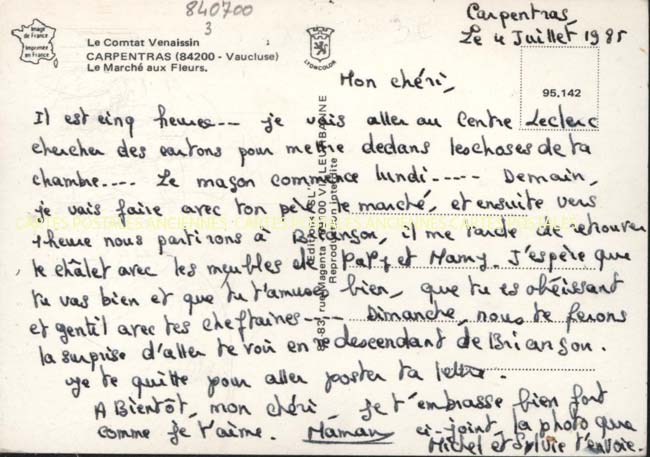 840700
3
Carpentras
Le 4 Juillet 1985
Image de France
Imprimée en France
Le Comtat Venaissin
CARPENTRAS (84200 - Vaucluse)
Le Marché aux Fleurs.
LYONCOLOR
95.142
Mon chéri,
Il est cinq heures -- je vais aller au Centre Leclerc
chercher des cartons pour mettre dedans les choses de ta
chambre.... Le maçon commence lundi ..... Demain,
je vais faire avec ton père le marché, et ensuite vers
1 heure nous partirons à Briançon, il me tarde de retrouver
le châlet avec les meubles de Papy et Mamy. J'espère que
tu vas bien et que tu t'amuses bien, que tu es obéissant
et gentil avec tes cheftaines ---- Dimanche, nous te ferons
la surprise d'aller te voir en redescendant de Briançon.
Je te quitte pour aller poster ta lettre.
A Bientôt, mon chéri, je t'embrasse bien fort
comme je t'aime. Maman ci-joint, la photo que
Michel et Sylvie t'envoie.
rue Magenta 69100 VILLEURBANNE
Reproduction interdite
CARTES POSTALES ANCIENNES - CARTES POSTALES ANCIENNES - CARTES POSTALES